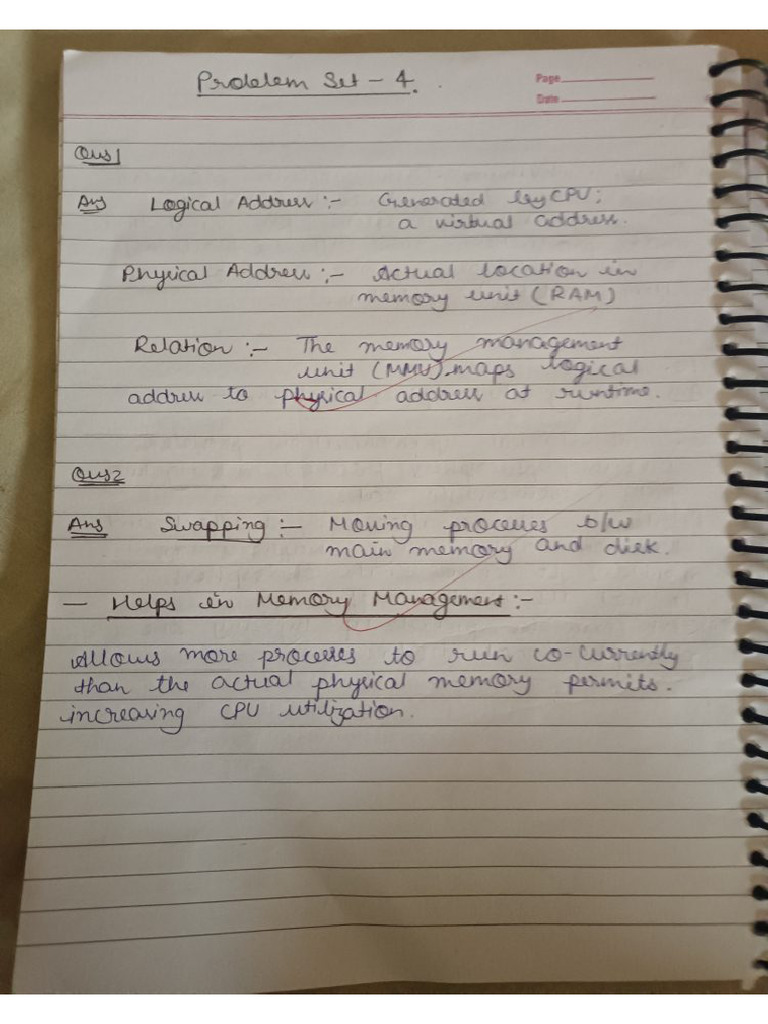 Problem Set - 4.
Page
Date
Ques1
Ans Logical Address :- Generated by CPU;
a virtual address.
Physical Address :- Actual location in
memory unit (RAM)
Relation :- The memory management
unit (MMU) maps logical
address to physical address at runtime.
Ques2
Ans Swapping :- Moving processes b/w
main memory and disk.
— Helps in Memory Management :-
Allows more processes to run co-currently
than the actual physical memory permits.
increasing CPU utilization.